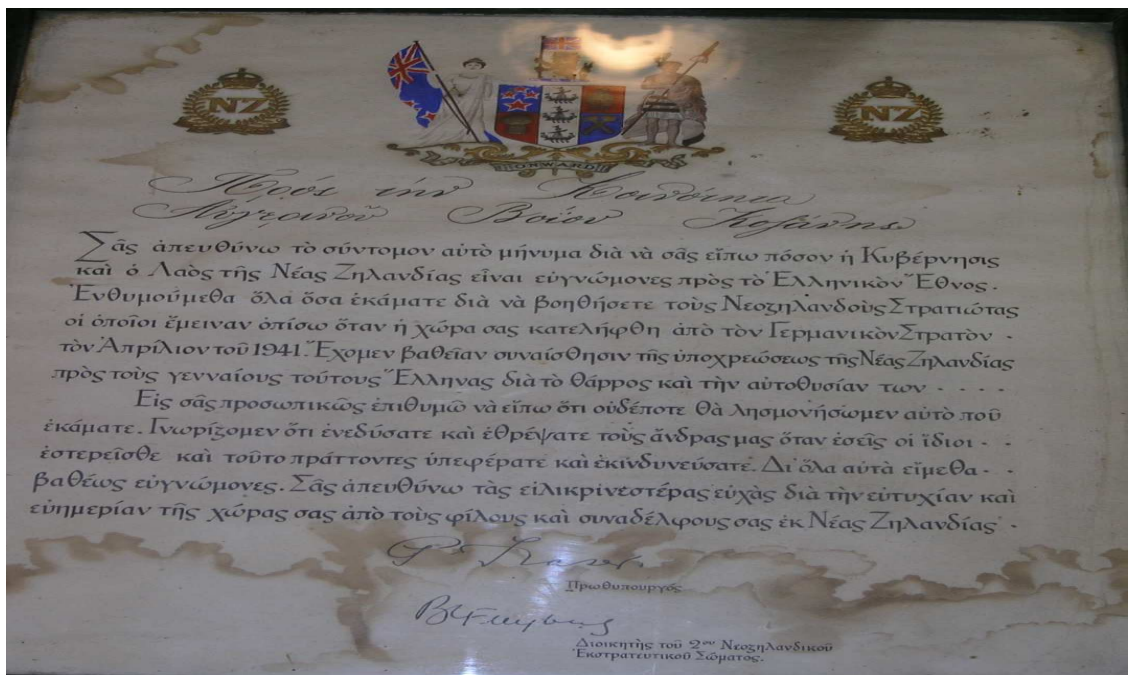 NZ
NZ
ONWARD
Πρός τήν Κοινότητα
Αὐγερινοῦ Βοΐου Κοζάνης
Σᾶς ἀπευθύνω τὸ σύντομον αὐτὸ μήνυμα διὰ νὰ σᾶς εἴπω πόσον ἡ Κυβέρνησις
καὶ ὁ Λαὸς τῆς Νέας Ζηλανδίας εἶναι εὐγνώμονες πρὸς τὸ Ἑλληνικὸν Ἔθνος.
Ἐνθυμούμεθα ὅλα ὅσα ἐκάματε διὰ νὰ βοηθήσετε τοὺς Νεοζηλανδοὺς Στρατιώτας
οἱ ὁποῖοι ἔμειναν ὀπίσω ὅταν ἡ χώρα σας κατελήφθη ἀπὸ τὸν Γερμανικὸν Στρατὸν ·
τὸν Ἀπρίλιον τοῦ 1941. Ἔχομεν βαθεῖαν συναίσθησιν τῆς ὑποχρεώσεως τῆς Νέας Ζηλανδίας
πρὸς τοὺς γενναίους τούτους Ἕλληνας διὰ τὸ θάρρος καὶ τὴν αὐτοθυσίαν των · · · ·
Εἰς σᾶς προσωπικῶς ἐπιθυμῶ νὰ εἴπω ὅτι οὐδέποτε θὰ λησμονήσωμεν αὐτὸ ποῦ
ἐκάματε. Γνωρίζομεν ὅτι ἐνεδύσατε καὶ ἐθρέψατε τοὺς ἄνδρας μας ὅταν ἐσεῖς οἱ ἴδιοι · ·
ἐστερεῖσθε καὶ τοῦτο πράττοντες ὑπεφέρατε καὶ ἐκινδυνεύσατε. Δι' ὅλα αὐτὰ εἴμεθα · ·
βαθέως εὐγνώμονες. Σᾶς ἀπευθύνω τὰς εἰλικρινεστέρας εὐχὰς διὰ τὴν εὐτυχίαν καὶ
εὐημερίαν τῆς χώρας σας ἀπὸ τοὺς φίλους καὶ συναδέλφους σας ἐκ Νέας Ζηλανδίας ·
Πρωθυπουργός
Διοικητὴς τοῦ 2ου Νεοζηλανδικοῦ
Ἐκστρατευτικοῦ Σώματος.